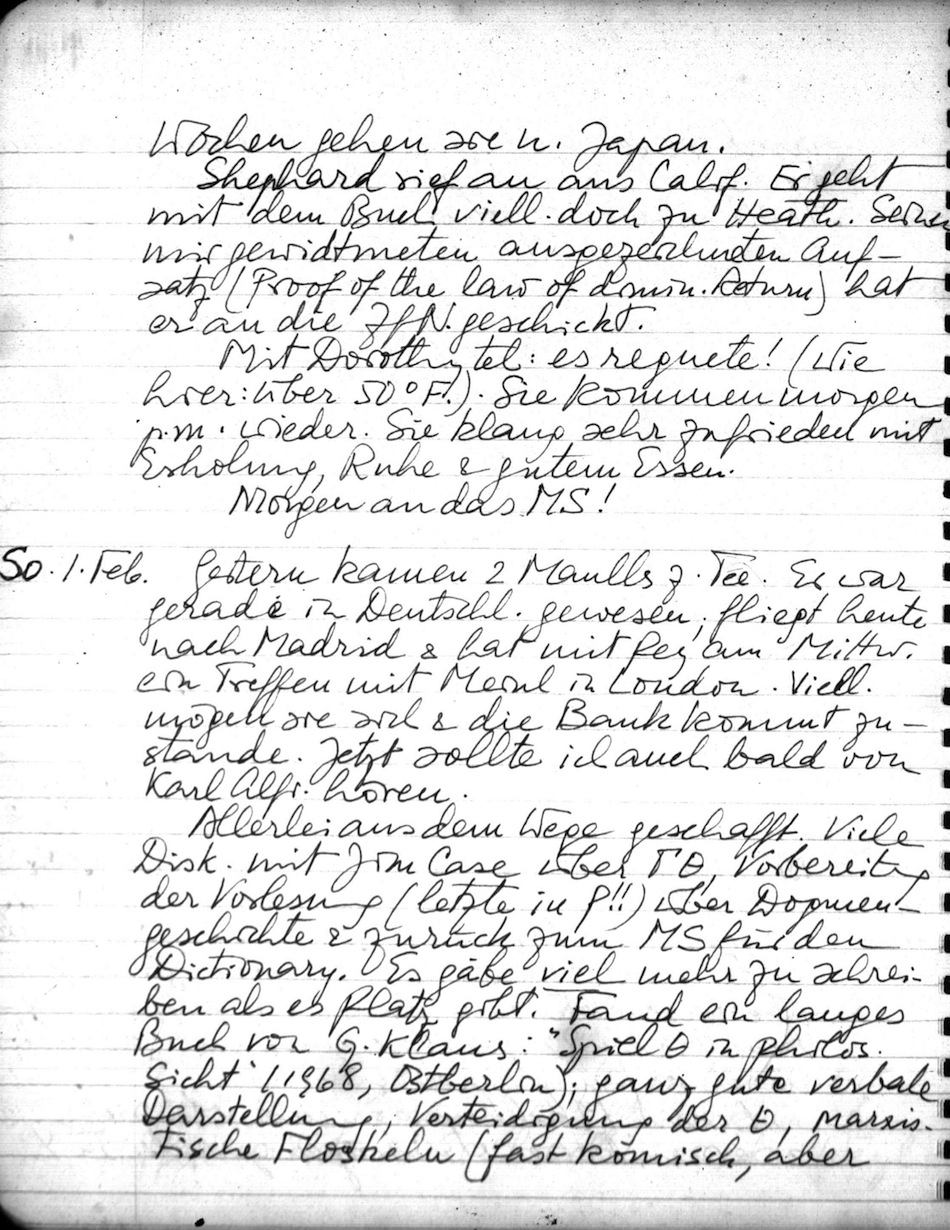 Wochen gehen sie n. Japan.
Shephard rief an aus Calif. Er geht
mit dem Buch viell. doch zu Heath. Seinen
mir gewidtmeten ausgezeichneten Auf-
satz (Proof of the law of dimin. Return) hat
er an die ZfN. geschickt.
Mit Dorothy tel: es regnete! (Wie
hier: über 50°F.). Sie kommen morgen
p.m. wieder. Sie klang sehr zufrieden mit
Erholung, Ruhe & gutem Essen.
Morgen an das MS!
So. 1. Feb. Gestern kamen 2 Maulls z. Tee. Er war
gerade in Deutschl. gewesen, fliegt heute
nach Madrid & hat mit am Mittw.
ein Treffen mit in London. Viell.
mögen sie sich & die Bank kommt zu-
stande. Jetzt sollte ich auch bald von
Karl Alfr. hören.
Allerlei aus dem Wege geschafft. Viele
Disk. mit Jim Case über Θ, Vorbereitg
der Vorlesung (letzte in P!!) über Dogmen-
geschichte & zurück zum MS für den
Dictionary. Es gäbe viel mehr zu schrei-
ben als es Platz gibt. Fand ein langes
Buch von G. Klaus: "Spiel Θ in philos.
Sicht" (1968, Ostberlin); ganz gute verbale
Darstellung, Verteidigung der Θ, marxis-
tische Floskeln (fast komisch, aber